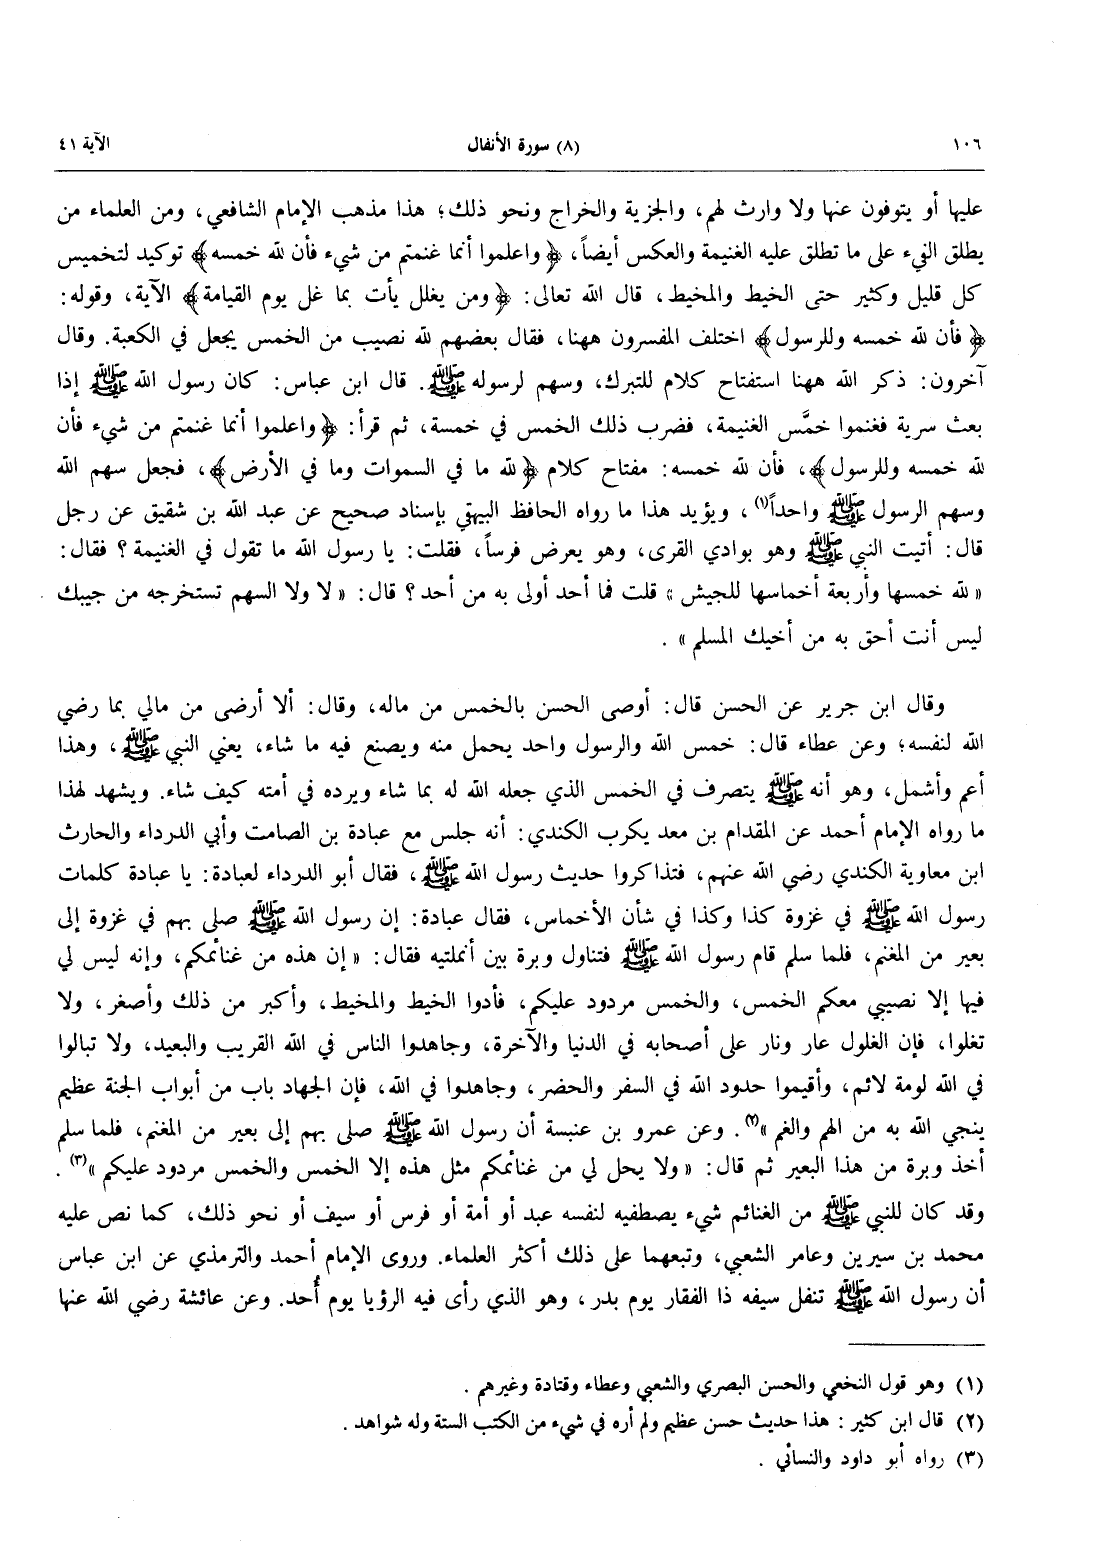 ١٠٦ (٨) سورة الأنفال الآية ٤١
عليها أو يتوفون عنها ولا وارث لهم، والجزية والخراج ونحو ذلك؛ هذا مذهب الإمام الشافعي، ومن العلماء من
يطلق الفيء على ما تطلق عليه الغنيمة والعكس أيضاً، ﴿واعلموا أنما غنمتم من شيء فأن لله خمسه﴾ توكيد لتخميس
كل قليل وكثير حتى الخيط والمخيط، قال الله تعالى: ﴿ومن يغلل يأت بما غل يوم القيامة﴾ الآية، وقوله:
﴿فأن لله خمسه وللرسول﴾ اختلف المفسرون ههنا، فقال بعضهم لله نصيب من الخمس يجعل في الكعبة. وقال
آخرون: ذكر الله ههنا استفتاح كلام للتبرك، وسهم لرسوله ﷺ. قال ابن عباس: كان رسول الله ﷺ إذا
بعث سرية فغنموا خمَّس الغنيمة، فضرب ذلك الخمس في خمسة، ثم قرأ: ﴿واعلموا أنما غنمتم من شيء فأن
لله خمسه وللرسول﴾، فأن لله خمسه: مفتاح كلام ﴿لله ما في السموات وما في الأرض﴾، فجعل سهم الله
وسهم الرسول ﷺ واحداً(١)، ويؤيد هذا ما رواه الحافظ البيهقي بإسناد صحيح عن عبد الله بن شقيق عن رجل
قال: أتيت النبي ﷺ وهو بوادي القرى، وهو يعرض فرساً، فقلت: يا رسول الله ما تقول في الغنيمة؟ فقال:
« لله خمسها وأربعة أخماسها للجيش » قلت فما أحد أولى به من أحد؟ قال: « لا ولا السهم تستخرجه من جيبك
ليس أنت أحق به من أخيك المسلم » .
وقال ابن جرير عن الحسن قال: أوصى الحسن بالخمس من ماله، وقال: ألا أرضى من مالي بما رضي
الله لنفسه؛ وعن عطاء قال: خمس الله والرسول واحد يحمل منه ويصنع فيه ما شاء، يعني النبي ﷺ، وهذا
أعم وأشمل، وهو أنه ﷺ يتصرف في الخمس الذي جعله الله له بما شاء ويرده في أمته كيف شاء. ويشهد لهذا
ما رواه الإمام أحمد عن المقدام بن معد يكرب الكندي: أنه جلس مع عبادة بن الصامت وأبي الدرداء والحارث
ابن معاوية الكندي رضي الله عنهم، فتذاكروا حديث رسول الله ﷺ، فقال أبو الدرداء لعبادة: يا عبادة كلمات
رسول الله ﷺ في غزوة كذا وكذا في شأن الأخماس، فقال عبادة: إن رسول الله ﷺ صلى بهم في غزوة إلى
بعير من المغنم، فلما سلم قام رسول الله ﷺ فتناول وبرة بين أنملتيه فقال: « إن هذه من غنائمكم، وإنه ليس لي
فيها إلا نصيبي معكم الخمس، والخمس مردود عليكم، فأدوا الخيط والمخيط، وأكبر من ذلك وأصغر، ولا
تغلوا، فإن الغلول عار ونار على أصحابه في الدنيا والآخرة، وجاهدوا الناس في الله القريب والبعيد، ولا تبالوا
في الله لومة لائم، وأقيموا حدود الله في السفر والحضر، وجاهدوا في الله، فإن الجهاد باب من أبواب الجنة عظيم
ينجي الله به من الهم والغم »(٢). وعن عمرو بن عنبسة أن رسول الله ﷺ صلى بهم إلى بعير من المغنم، فلما سلم
أخذ وبرة من هذا البعير ثم قال: « ولا يحل لي من غنائمكم مثل هذه إلا الخمس والخمس مردود عليكم »(٣).
وقد كان للنبي ﷺ من الغنائم شيء يصطفيه لنفسه عبد أو أمة أو فرس أو سيف أو نحو ذلك، كما نص عليه
محمد بن سيرين وعامر الشعبي، وتبعهما على ذلك أكثر العلماء. وروى الإمام أحمد والترمذي عن ابن عباس
أن رسول الله ﷺ تنفل سيفه ذا الفقار يوم بدر، وهو الذي رأى فيه الرؤيا يوم أُحد. وعن عائشة رضي الله عنها
(١) وهو قول النخعي والحسن البصري والشعبي وعطاء وقتادة وغيرهم .
(٢) قال ابن كثير : هذا حديث حسن عظيم ولم أره في شيء من الكتب الستة وله شواهد .
(٣) رواه أبو داود والنسائي .